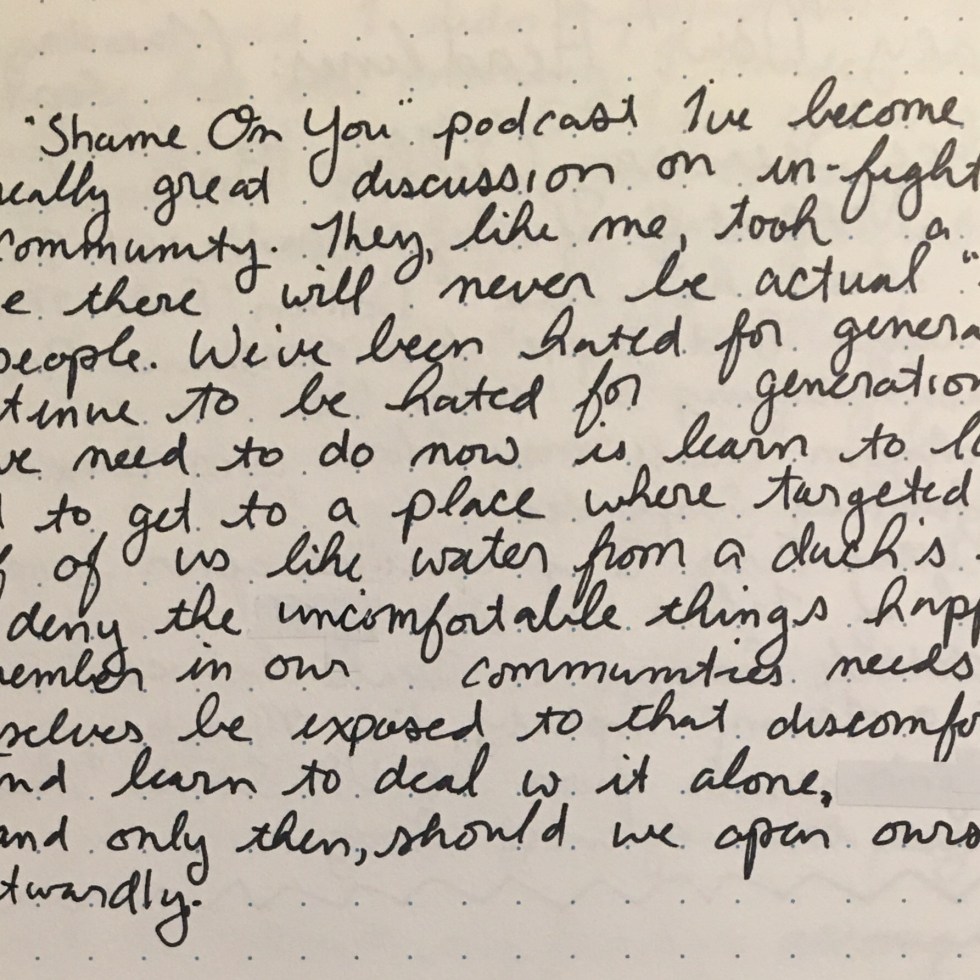 "Shame On You" podcast I've become
really great discussion on in-fight
community. They, like me, took a
e there will never be actual "
people. We've been hated for genera
tinue to be hated for generation
ve need to do now is learn to l
d to get to a place where targeted
f of us like water from a duck's
deny the uncomfortable things happ
member in our communities needs
selves be exposed to that discomfo
nd learn to deal w it alone,
and only then, should we open ours
twardly.